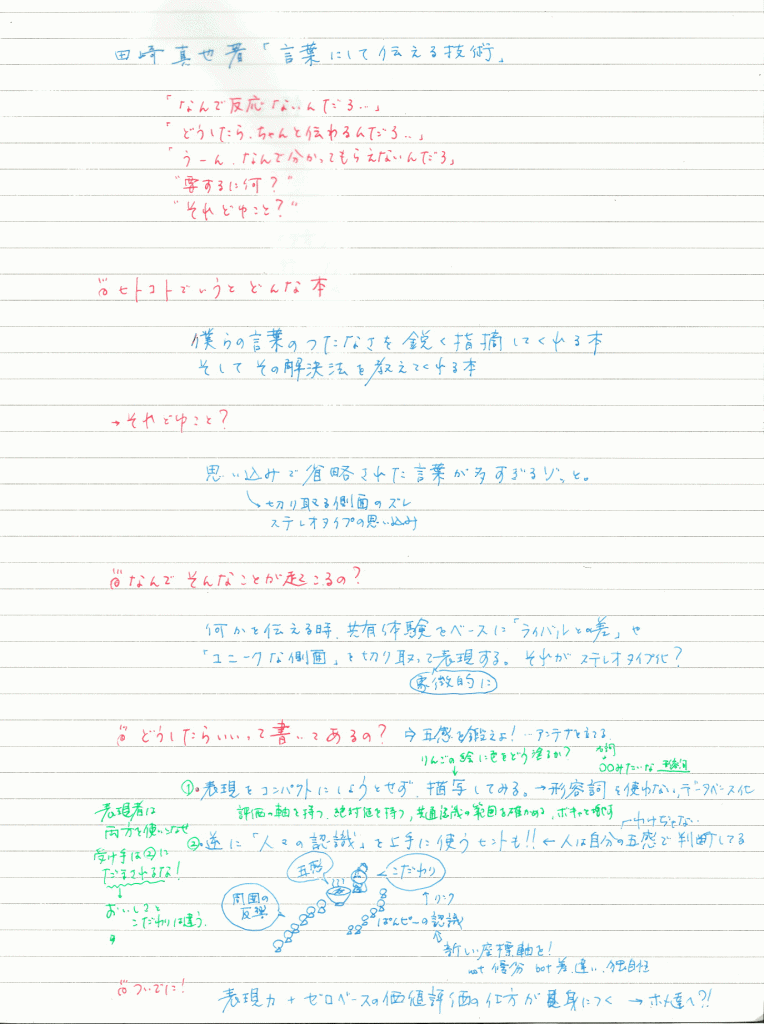 田崎真也著「言葉にして伝える技術」
「なんで反応ないんだろ..」
「どうしたら、ちゃんと伝わるんだろ..」
「うーん、なんで分かってもらえないんだろ」
"要するに何？"
"それどゆこと？"
ヒトコトでいうと どんな本
僕らの言葉のつたなさを 鋭く指摘してくれる本
そして その解決法を教えてくれる本
→それどゆこと？
思い込みで省略された言葉が多すぎるゾっと。
切り取る側面のズレ
ステレオタイプの思い込み
なんで そんなことが起こるの？
何かを伝える時、共有体験をベースに「ライバルとの差」や
「ユニークな側面」を切り取って表現する。それが ステレオタイプ化？
象徴的に
どうしたらいいって書いてあるの？ ⇒五感を鍛えよ！‥アンテナを立てる
りんごの絵に色をどう塗るか？
○○みたいな
①表現をコンパクトにしようとせず、描写してみる。→形容詞を使わない、データベース化
評価の軸を持つ、絶対値を持つ、共通認識の範囲を確かめる、ボキャを増やす
わけじゃない
②逆に「人々の認識」を上手に使うヒントも!! ← 人は自分の五感で判断してる
表現者は
両方を使いこなせ
受け手は②に
だまされるな！
おいしさと
こだわりは違う。
五感
こだわり
周囲の
反響
↑リンク
ぱんピーの認識
新しい座標軸を！
not 優劣 but 差、違い、独自性
ついでに！
表現力 + ゼロベースの価値評価の仕方が 身につく →